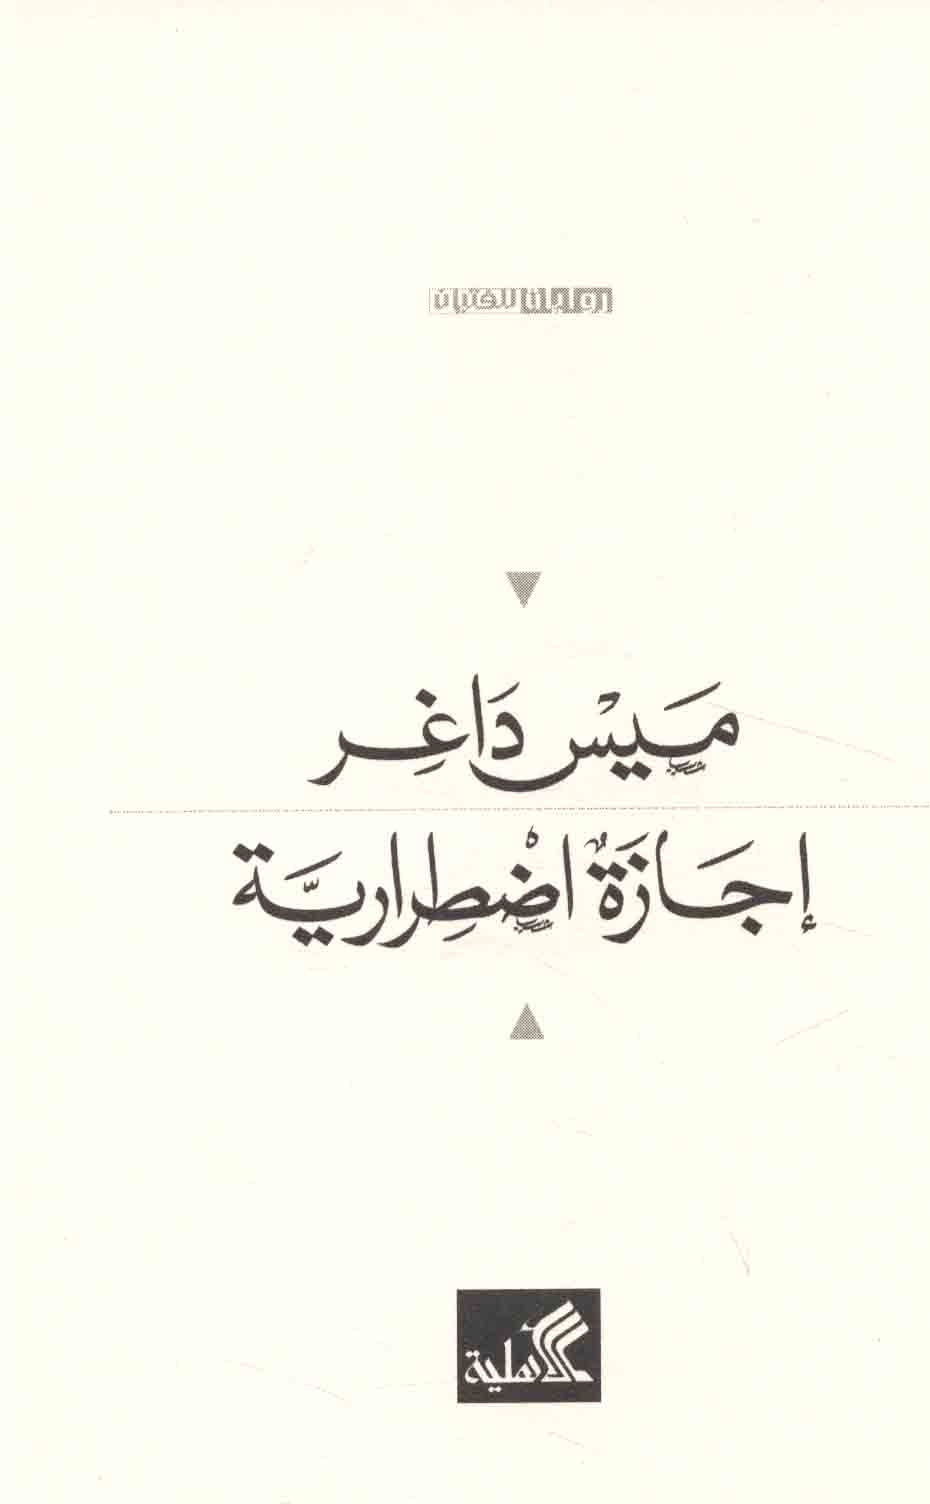 روايات للفتيان
مَيْس دَاغِر
إجَازَةٌ اضْطِراريَّة
الأهلية